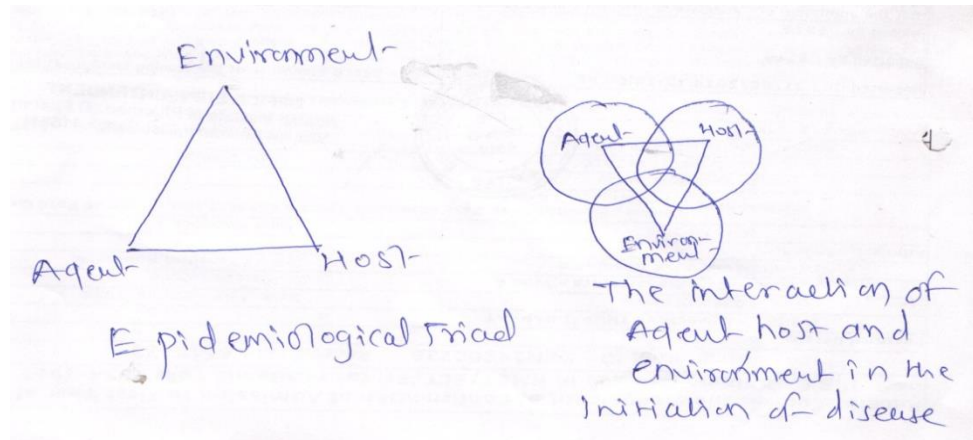 Environment
Agent
Host
Epidemiological Triad
Agent
Host
Environ-
ment
The interaction of
Agent host and
environment in the
initiation of disease